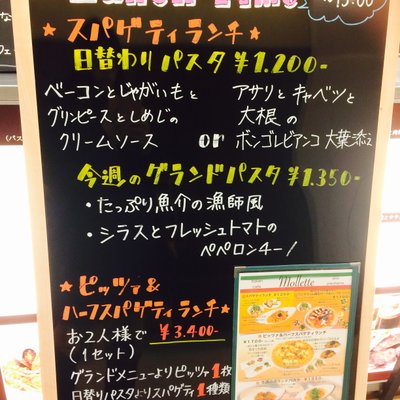 Lunch Time
15:00
★スパゲティランチ★
日替わりパスタ ¥1.200-
ベーコンとじゃがいもと
グリンピースとしめじの
クリームソース
or
アサリとキャベツと
大根の
ボンゴレビアンコ 大葉添え
今週のグランドパスタ ¥1.350-
・たっぷり魚介の漁師風
・シラスとフレッシュトマトの
ペペロンチーノ
★ピッツァ&
ハーフスパゲティランチ★
お2人様で ¥3.400-
(1セット)
グランドメニューよりピッツァ1枚
日替りパスタよりスパゲティ1種類
Mollette